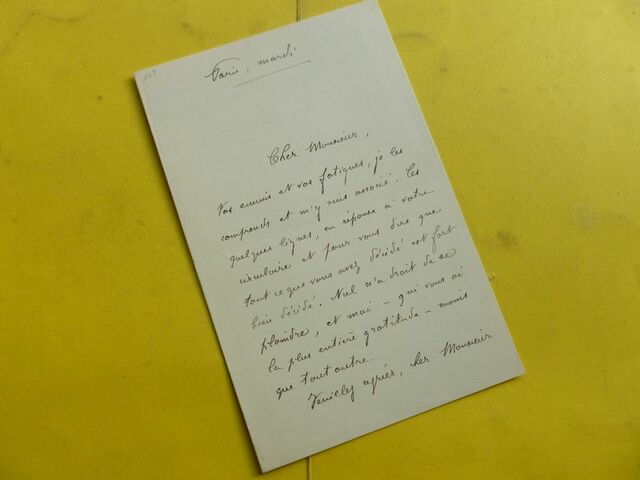 Paris, mardi
Cher Monsieur,
Vos ennuis et vos fatigues, je les
comprends et m'y suis associé. Ces
quelques lignes, en réponse à votre
circulaire et pour vous dire que
tout ce que vous avez décidé est fort
bien décidé. Nul n'a droit de se
plaindre, et moi - qui vous ai
la plus entière gratitude - moins
que tout autre.
Veuillez agréer, cher Monsieur